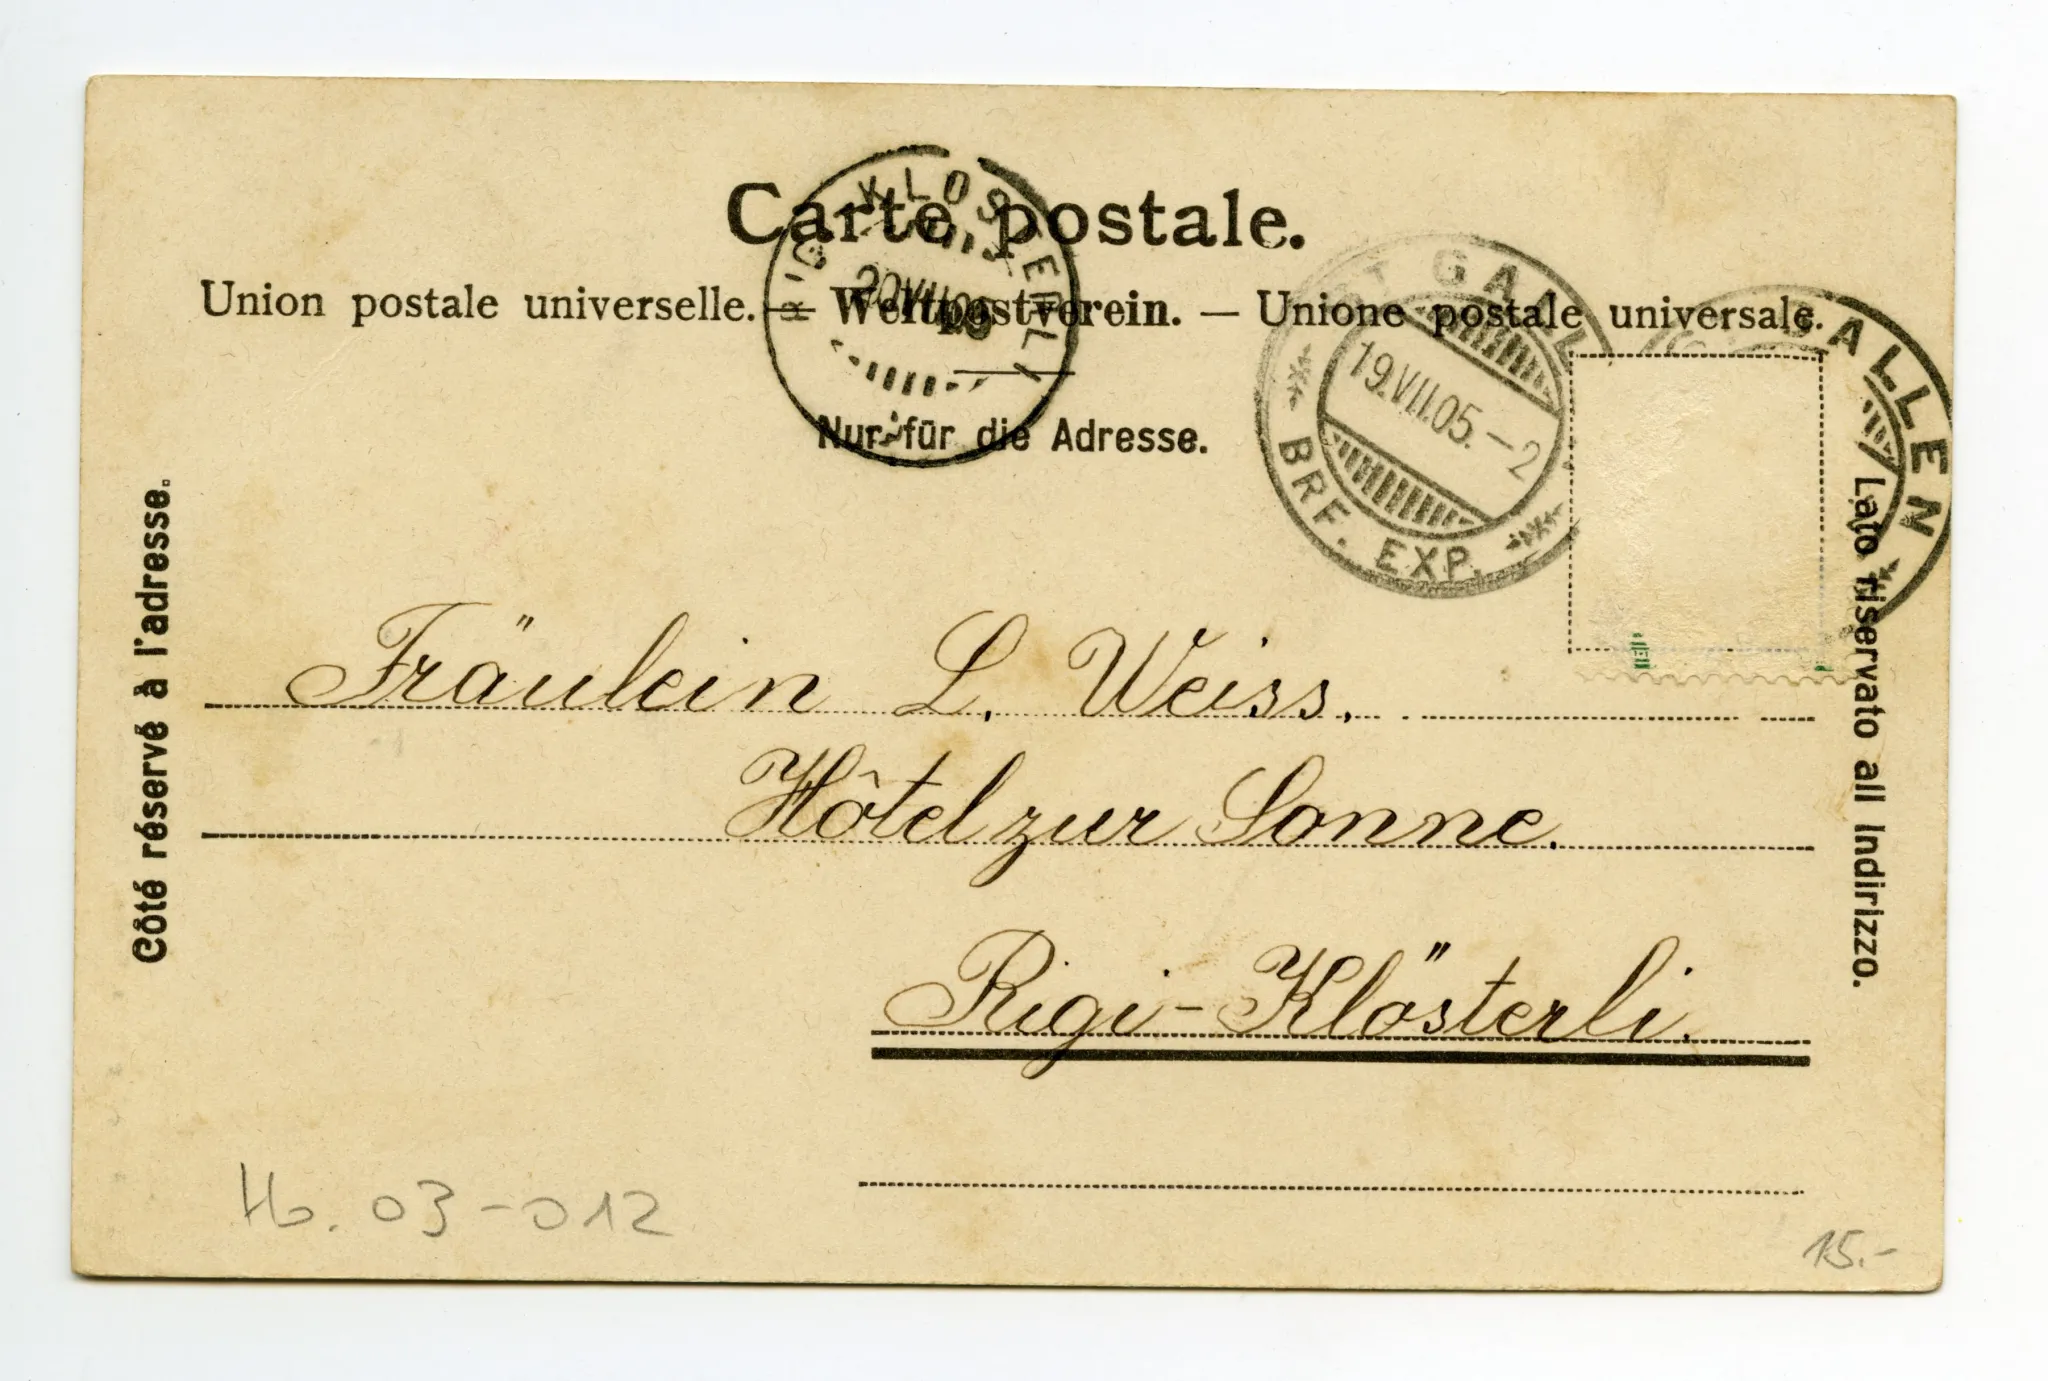 Carte postale.
Union postale universelle. — Weltpostverein. — Unione postale universale.
Nur für die Adresse.
RIGI KLOSTERLI
20.VII.05
ST. GALLEN
19.VII.05.–2
BRF. EXP.
GALLEN
Côté réservé à l'adresse.
Lato riservato all Indirizzo.
Fräulein L. Weiss.
Hôtel zur Sonne.
Rigi-Klösterli.
03-012
15.-